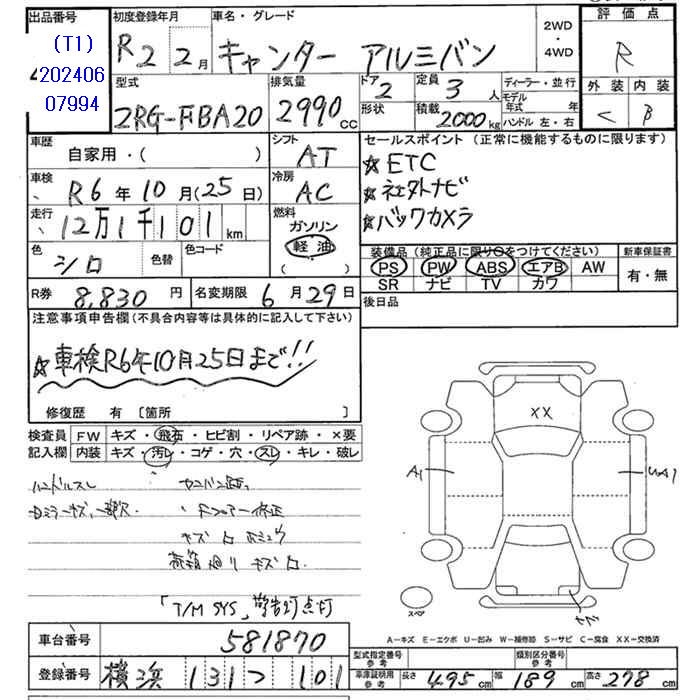 出品番号
(T1)
202406
07994
初度登録年月 R2 2月
車名・グレード キャンター アルミバン
2WD
・
4WD
評価点
R
外装 内装
C B
型式 2RG-FBA20
排気量 2990cc
ドア 2
形状
定員 3人
積載 2000kg
ディーラー・並行
モデル年式 年
ハンドル 左・右
車歴 自家用・( )
シフト AT
セールスポイント (正常に機能するものに限ります)
☆ETC
☆社外ナビ
☆バックカメラ
車検 R6年10月(25日)
冷房 AC
走行 12万1千101km
燃料
ガソリン
軽油
( )
色 シロ 色替
色コード
装備品 (純正品に限り○をつけてください)
PS PW ABS エアB AW
SR ナビ TV カワ
新車保証書
有・無
R券 8,830円
名変期限 6月29日
後日品
注意事項申告欄(不具合内容等は具体的に記入して下さい)
☆車検R6年10月25日まで!!
修復歴 有 [箇所 ]
検査員
記入欄
FW キズ・飛石・ヒビ割・リペア跡・×要
内装 キズ・汚レ・コゲ・穴・スレ・キレ・破レ
ハンドルスレ
キズ
荷箱廻りキズ
「T/M SYS」警告灯点灯
XX
A1
UA1
スペア
A-キズ E-エクボ U-凹み W-補修跡 S-サビ C-腐食 XX-交換済
車台番号 581870
登録番号 横浜 131 101
型式指定番号
参考
類別区分番号
参考
車庫証明用
参考
長さ 495cm 幅 189cm 高さ 278cm